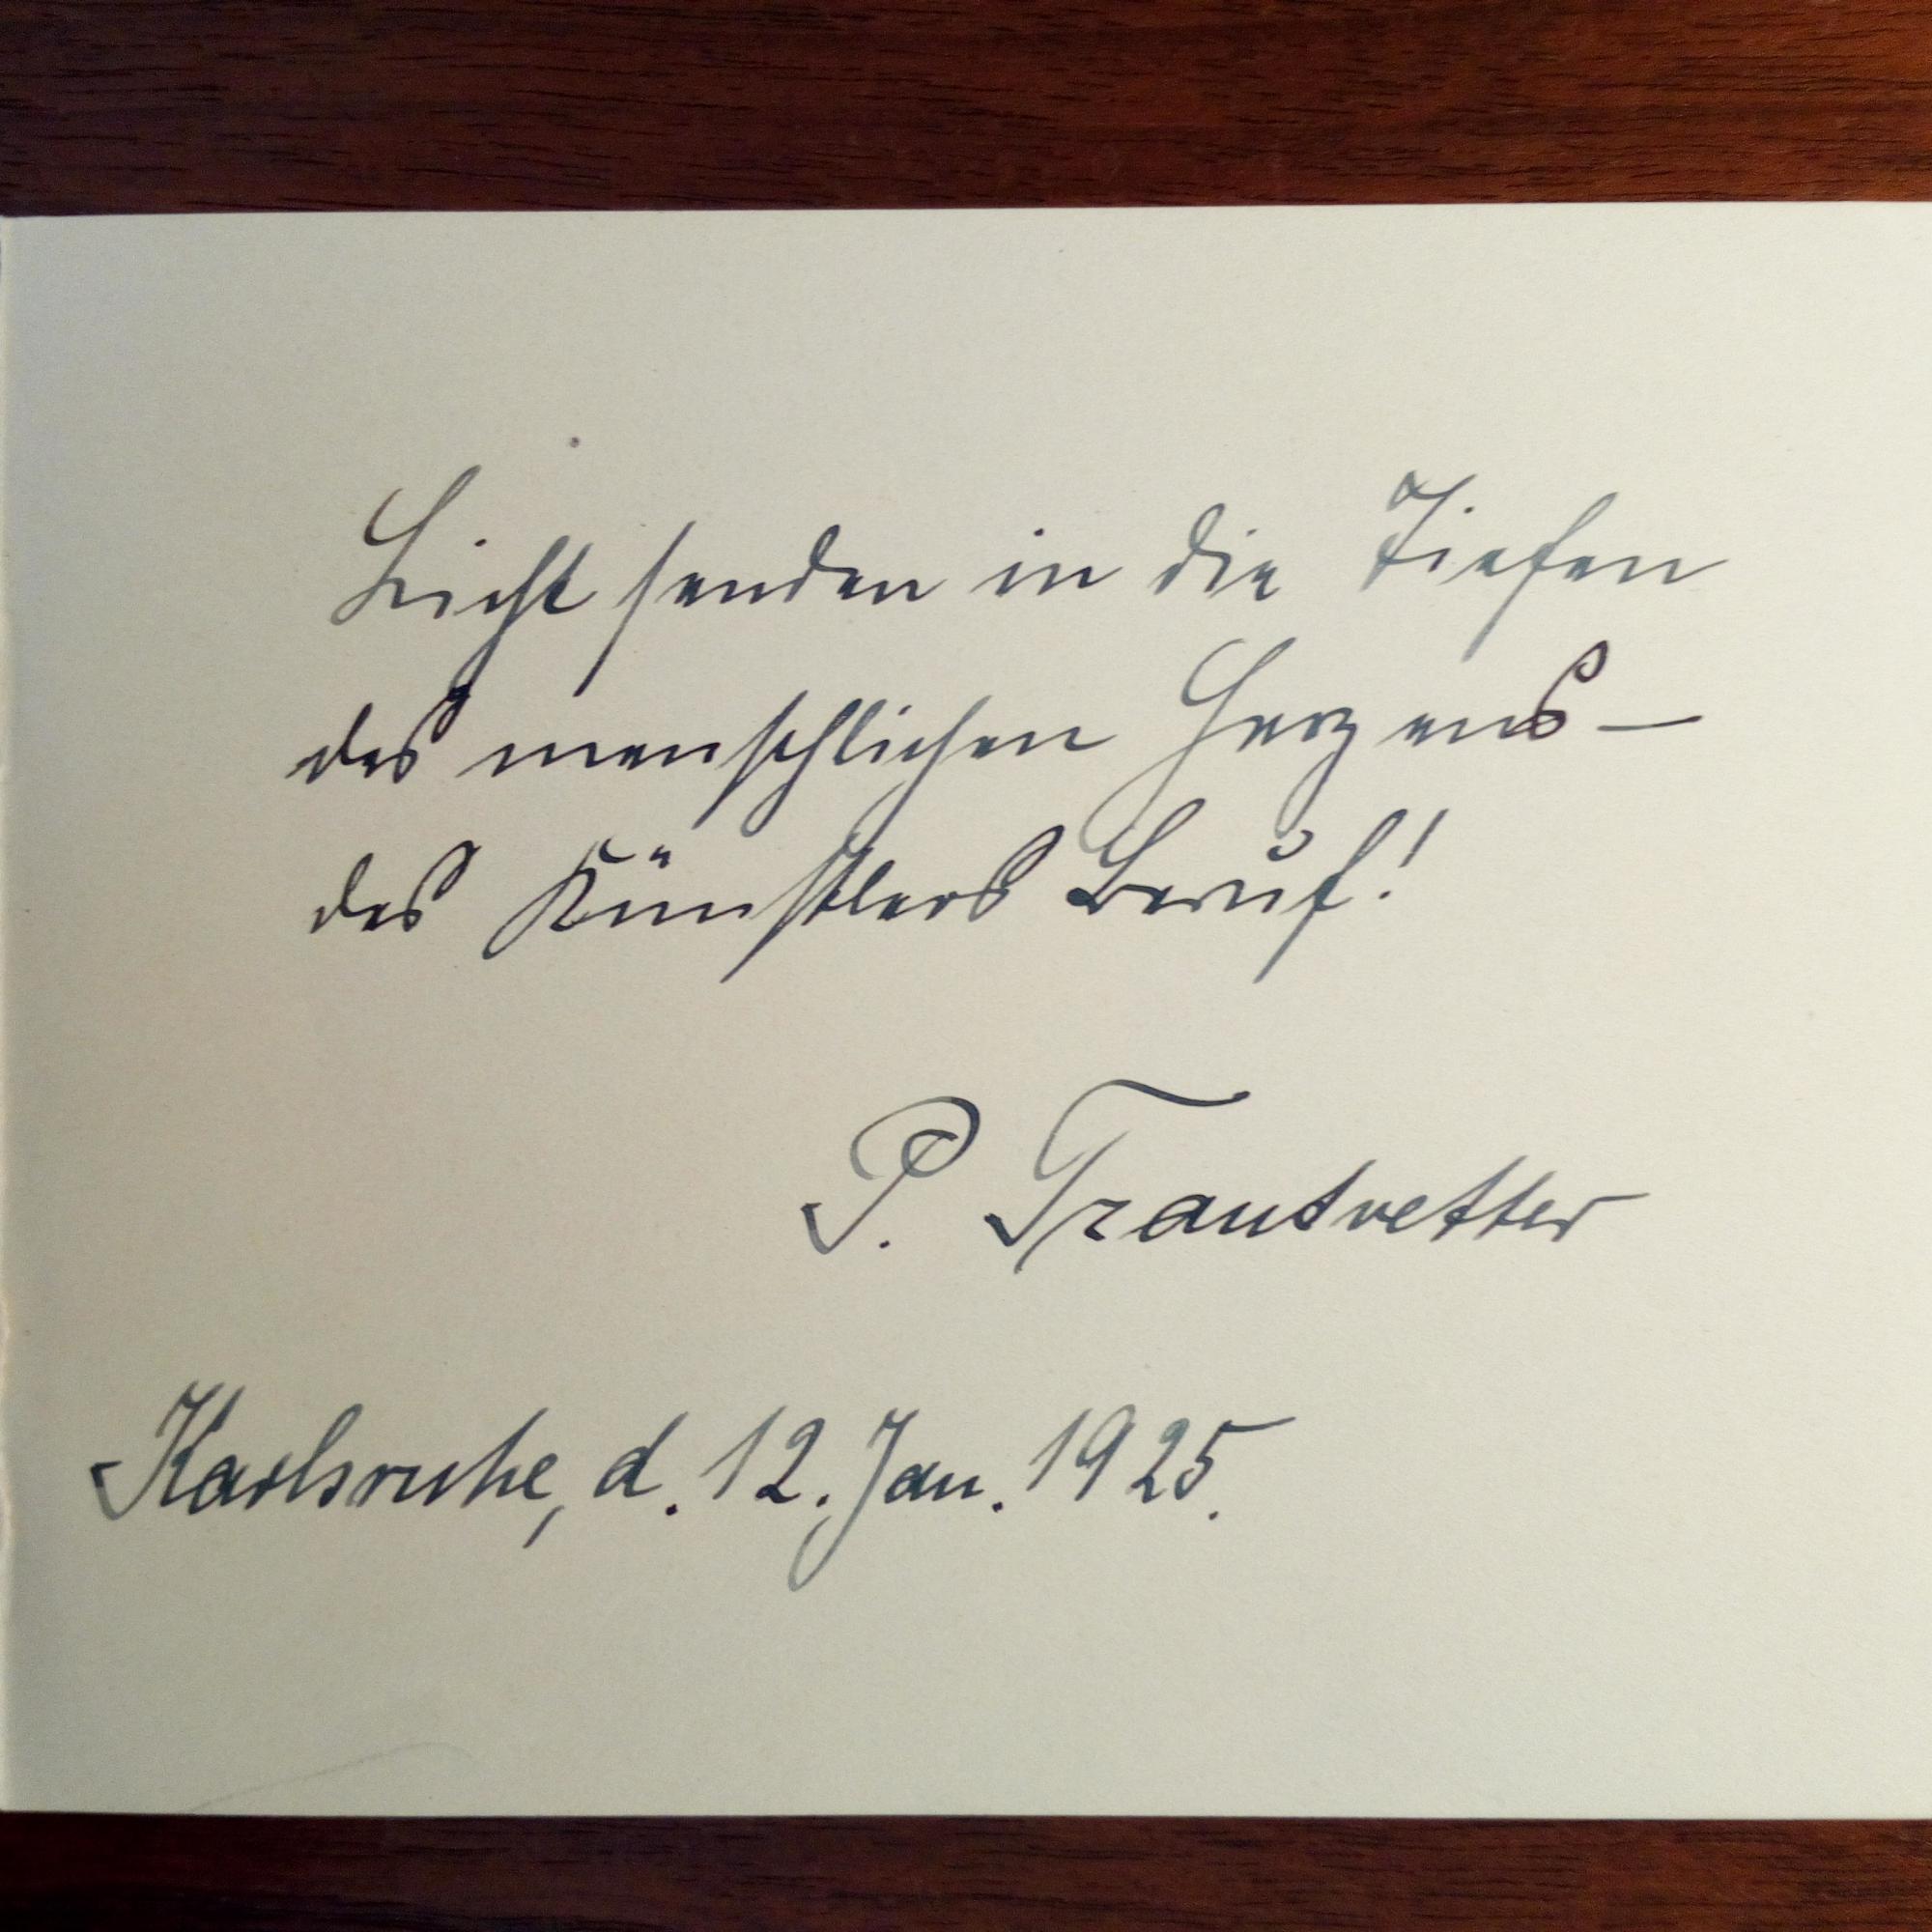 Licht senden in die Tiefen
des menschlichen Herzens –
des Künstlers Beruf!
P. Trautvetter
Karlsruhe, d. 12. Jan. 1925.